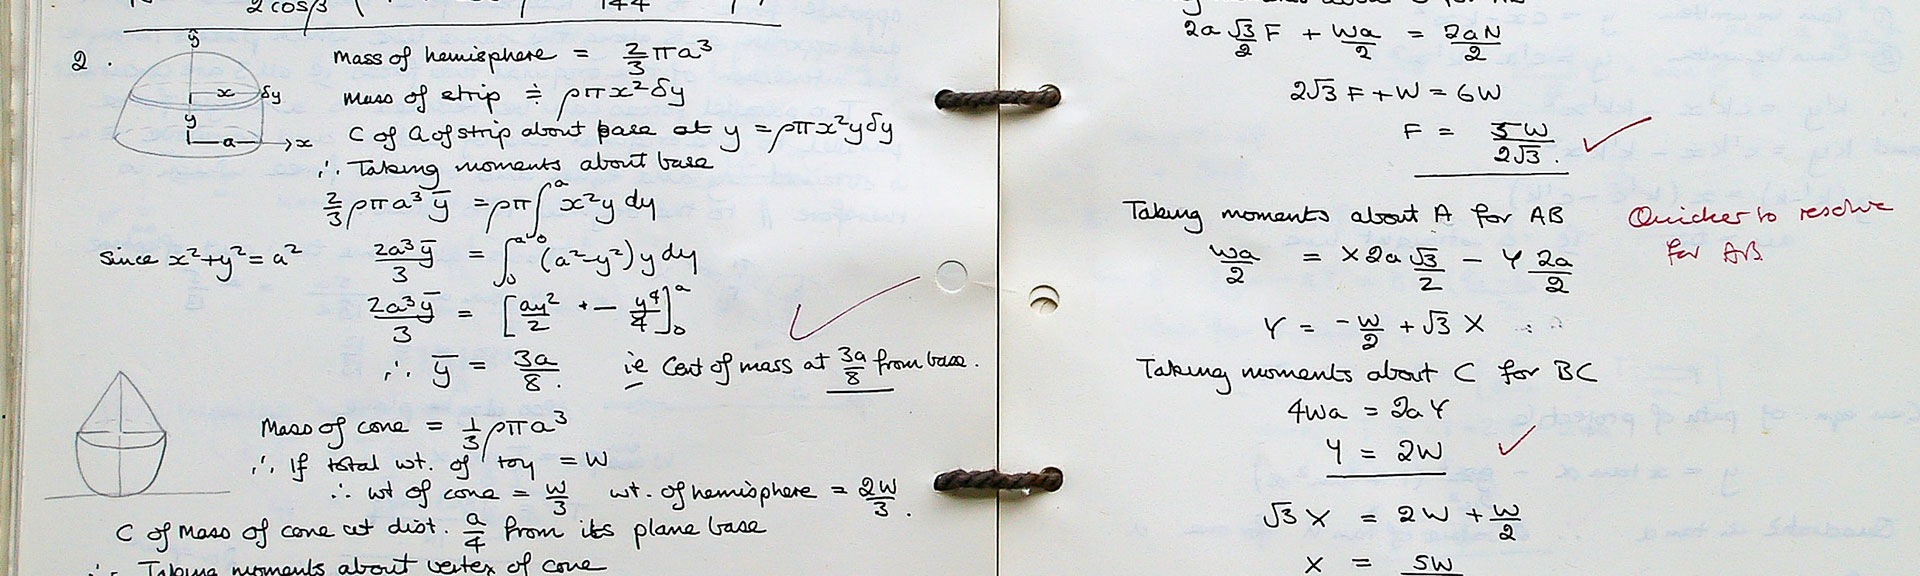 2cosβ 144
2.
Mass of hemisphere = 2/3 πa³
y
x δy
y
a x
Mass of strip ≑ ρπx²δy
C of G of strip about base at y = ρπx²yδy
∴ Taking moments about base
2/3 ρπa³ȳ = ρπ∫₀ᵃ x²y dy
since x²+y²=a² 2a³ȳ/3 = ∫₀ᵃ (a²-y²)y dy
2a³ȳ/3 = [ay²/2 + - y⁴/4]₀ᵃ
∴ ȳ = 3a/8. ie Cent of mass at 3a/8 from base.
Mass of cone = 1/3 ρπa³
∴ If total wt. of toy = W
∴ wt of cone = W/3 wt. of hemisphere = 2W/3.
C of Mass of cone at dist. a/4 from its plane base
∴ Taking moments about vertex of cone
2a √3/2 F + Wa/2 = 2aN/2
2√3 F + W = 6W
F = 5W/2√3.
Taking moments about A for AB
Quicker to resolve
for AB
Wa/2 = X2a √3/2 - Y 2a/2
Y = -W/2 + √3 X
Taking moments about C for BC
4Wa = 2aY
Y = 2W
√3 X = 2W + W/2
X = 5W